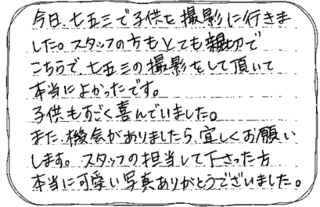 今日、七五三で子供を撮影に行きま
した。スタッフの方もとても親切で
こちらで、七五三の撮影をして頂いて
本当によかったです。
子供もすごく喜んでいました。
また、機会がありましたら、宜しくお願い
します。スタッフの担当して下さった方
本当に可愛い写真ありがとうございました。